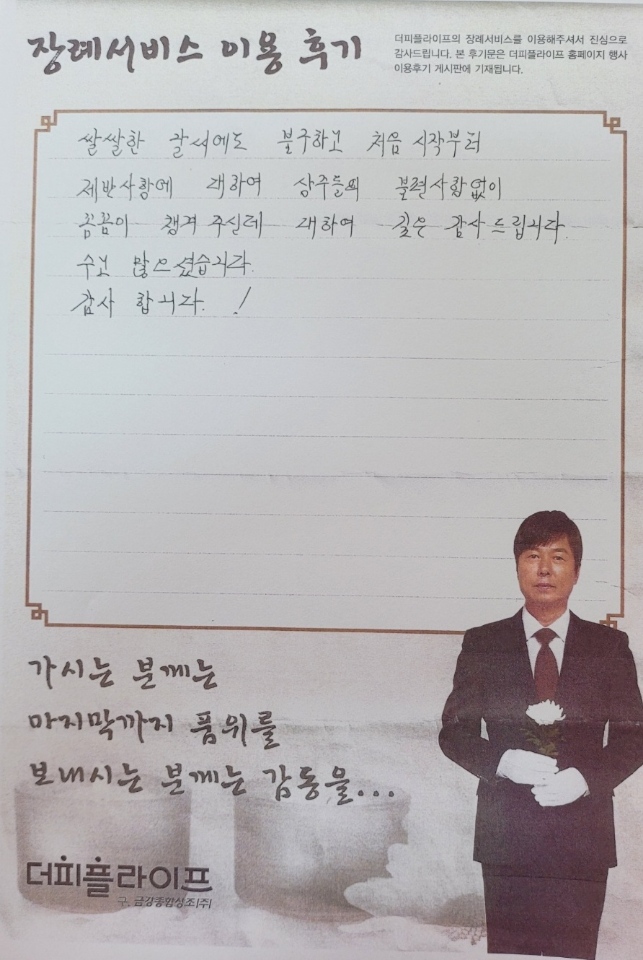 장례서비스 이용 후기
더피플라이프의 장례서비스를 이용해주셔서 진심으로
감사드립니다. 본 후기문은 더피플라이프 홈페이지 행사
이용후기 게시판에 기재됩니다.
쌀쌀한 날씨에도 불구하고 처음 시작부터
제반사항에 대하여 상주들의 불편사항없이
꼼꼼이 챙겨 주신데 대하여 깊은 감사드립니다.
수고 많으셨습니다.
감사 합니다. !
가시는 분께는
마지막까지 품위를
보내시는 분께는 감동을...
더피플라이프
구. 금강종합상조(주)